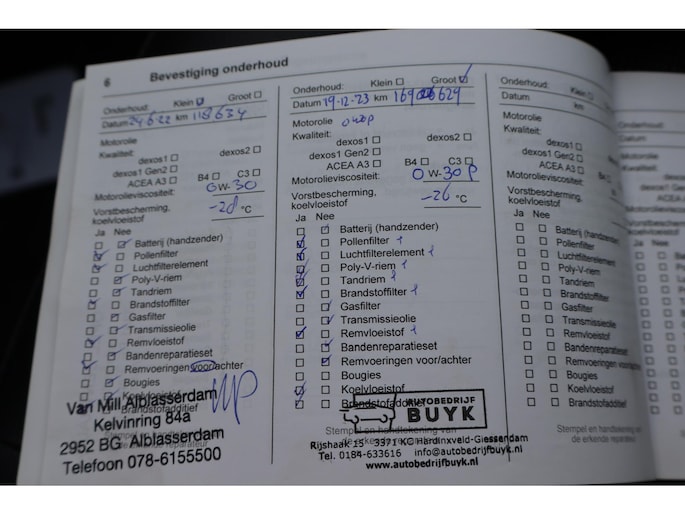 6 Bevestiging onderhoud
Onderhoud: Klein Groot
Datum 24-6-22 km 118634
Motorolie
Kwaliteit:
dexos1 dexos2
dexos1 Gen2
ACEA A3 B4 C3
Motorolieviscositeit:
0W-30
Vorstbescherming,
koelvloeistof -28 °C
Ja Nee
Batterij (handzender)
Pollenfilter
Luchtfilterelement
Poly-V-riem
Tandriem
Brandstoffilter
Gasfilter
Transmissieolie
Remvloeistof
Bandenreparatieset
Remvoeringen voor/achter
Bougies
Koelvloeistof
Brandstofadditief
Van Mill Alblasserdam
Kelvinring 84a
2952 BG Alblasserdam
Telefoon 078-6155500
Onderhoud: Klein Groot
Datum 19-12-23 km
Motorolie
Kwaliteit:
dexos1 dexos2
dexos1 Gen2
ACEA A3 B4 C3
Motorolieviscositeit: 0W-30 P
Vorstbescherming,
koelvloeistof -26 °C
Ja Nee
Batterij (handzender)
Pollenfilter 1
Luchtfilterelement 1
Poly-V-riem 1
Tandriem 1
Brandstoffilter 1
Gasfilter
Transmissieolie
Remvloeistof 1
Bandenreparatieset
Remvoeringen voor/achter
Bougies
Koelvloeistof
Brandstofadditief
AUTOBEDRIJF
BUYK
Stempel en handtekening van
de erkende reparateur
Rijshaak 15 3371 KC Hardinxveld-Giessendam
Tel. 0184-633616 info@autobedrijfbuyk.nl
www.autobedrijfbuyk.nl
Onderhoud: Klein Groot
Datum km
Motorolie
Kwaliteit:
dexos1 dexos2
dexos1 Gen2
ACEA A3 B4 C3
Motorolieviscositeit:
Vorstbescherming,
koelvloeistof °C
Ja Nee
Batterij (handzender)
Pollenfilter
Luchtfilterelement
Poly-V-riem
Tandriem
Brandstoffilter
Gasfilter
Transmissieolie
Remvloeistof
Bandenreparatieset
Remvoeringen voor/achter
Bougies
Koelvloeistof
Brandstofadditief
Stempel en handtekening van
de erkende reparateur
Onderhoud:
Datum
Motorolie
Kwaliteit:
ACEA
Motorolieviscositeit
Vorstbescherming
koelvloeistof
Ja Nee